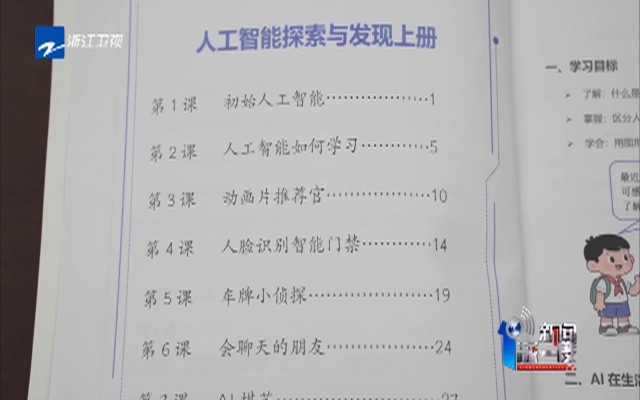 浙江卫视
人工智能探索与发现上册
第1课 初始人工智能………………1
第2课 人工智能如何学习…………5
第3课 动画片推荐官………………10
第4课 人脸识别智能门禁…………14
第5课 车牌小侦探…………………19
第6课 会聊天的朋友………………24
一、学习目标
➢ 了解：什么是
➢ 掌握：区分人
➢ 学会：用图形
最近
可感
了解
二、AI 在生活